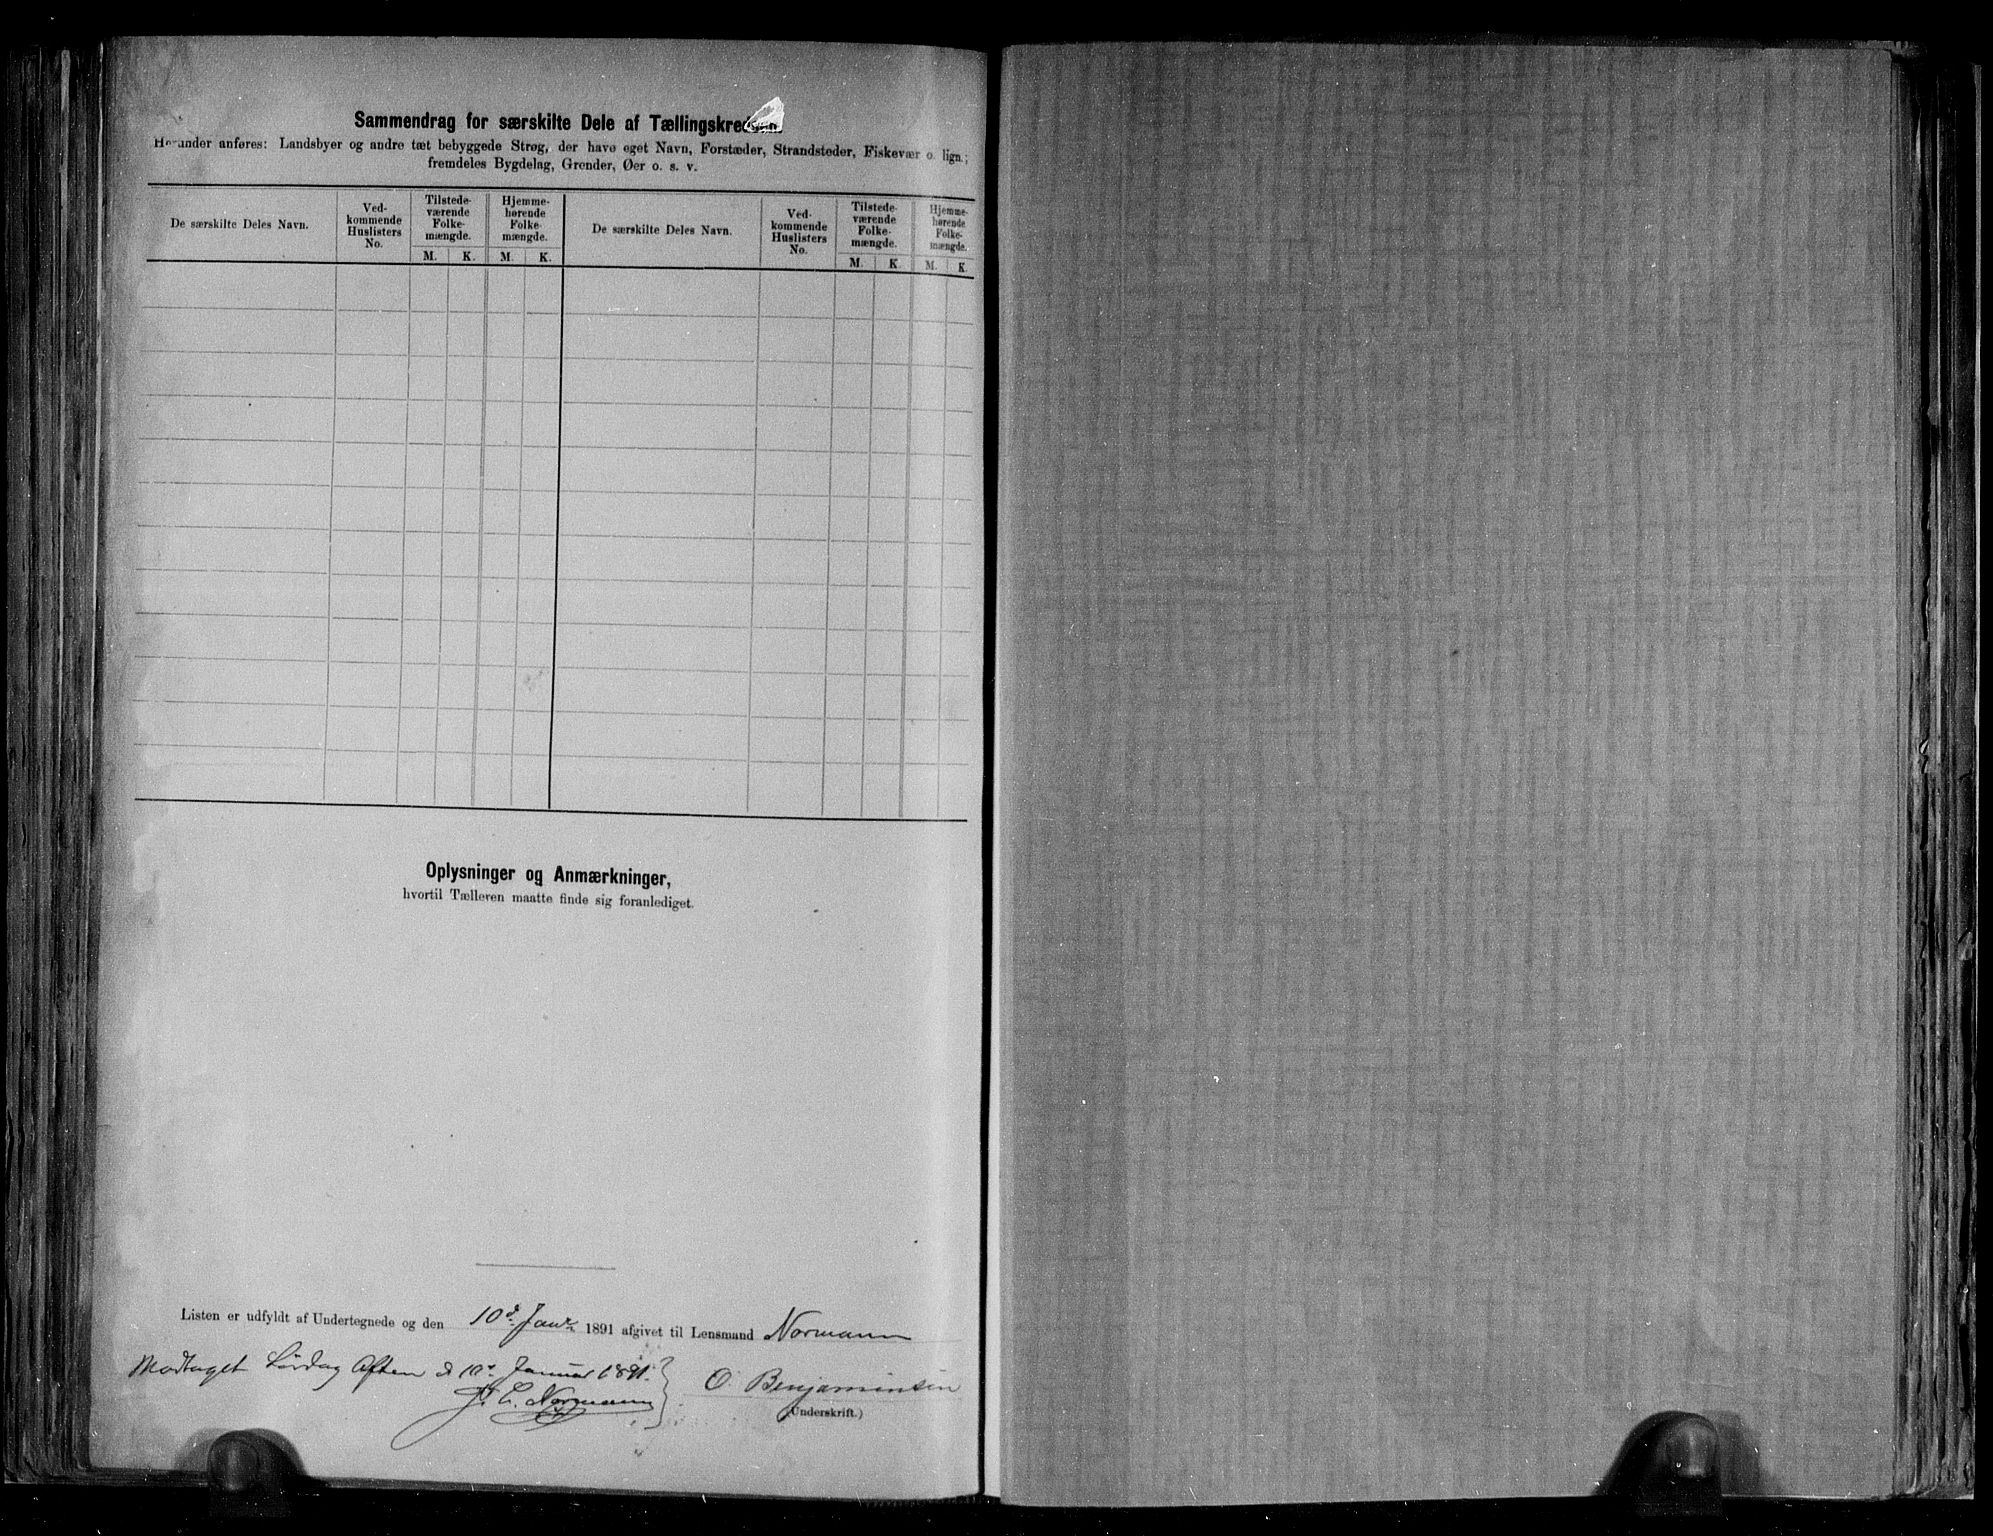 Sammendrag for særskilte Dele af Tællingskredsen.
Herunder anføres: Landsbyer og andre tæt bebyggede Strøg, der have eget Navn, Forstæder, Strandsteder, Fiskevær o. lign.;
fremdeles Bygdelag, Grender, Øer o. s. v.
De særskilte Deles Navn.
Ved-
kommende
Huslisters
No.
Tilstede-
værende
Folke-
mængde.
M. K.
Hjemme-
hørende
Folke-
mængde.
M. K.
De særskilte Deles Navn.
Ved-
kommende
Huslisters
No.
Tilstede-
værende
Folke-
mængde.
M. K.
Hjemme-
hørende
Folke-
mængde.
M. K.
Oplysninger og Anmærkninger,
hvortil Tælleren maatte finde sig foranlediget.
Listen er udfyldt af Undertegnede og den 10d Janr 1891 afgivet til Lensmand Normann
Modtaget Lørdag Aften d 10de Januar 1891.
Normann
O. Benjaminsen
(Underskrift.)